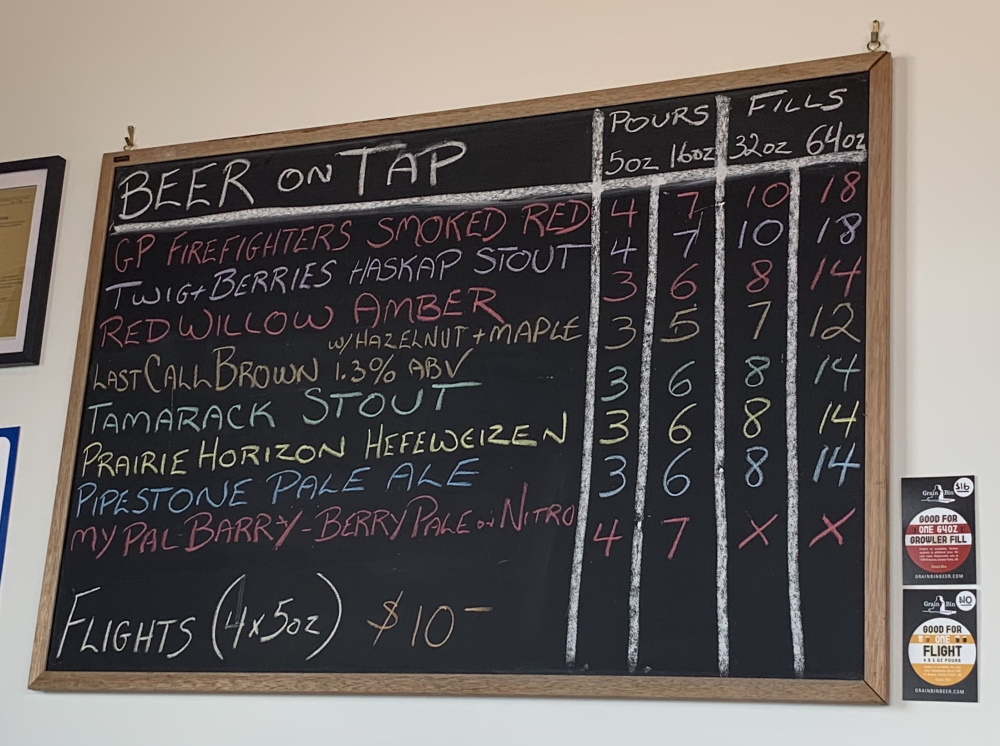 POURS FILLS
BEER ON TAP 5oz 16oz 32oz 64oz
GP FIREFIGHTERS SMOKED RED 4 7 10 18
TWIG+BERRIES HASKAP STOUT 4 7 10 18
RED WILLOW AMBER 3 6 8 14
W/HAZELNUT+MAPLE
LAST CALL BROWN 1.3% ABV 3 5 7 12
TAMARACK STOUT 3 6 8 14
PRAIRIE HORIZON HEFEWEIZEN 3 6 8 14
PIPESTONE PALE ALE 3 6 8 14
MY PAL BARRY-BERRY PALE ON NITRO 4 7 X X
FLIGHTS (4x5oz) $10-
Grain Bin $16
GOOD FOR
ONE 64OZ
GROWLER FILL
GRAINBINBEER.COM
Grain Bin
GOOD FOR
ONE
FLIGHT
4 X 5 OZ POURS
GRAINBINBEER.COM